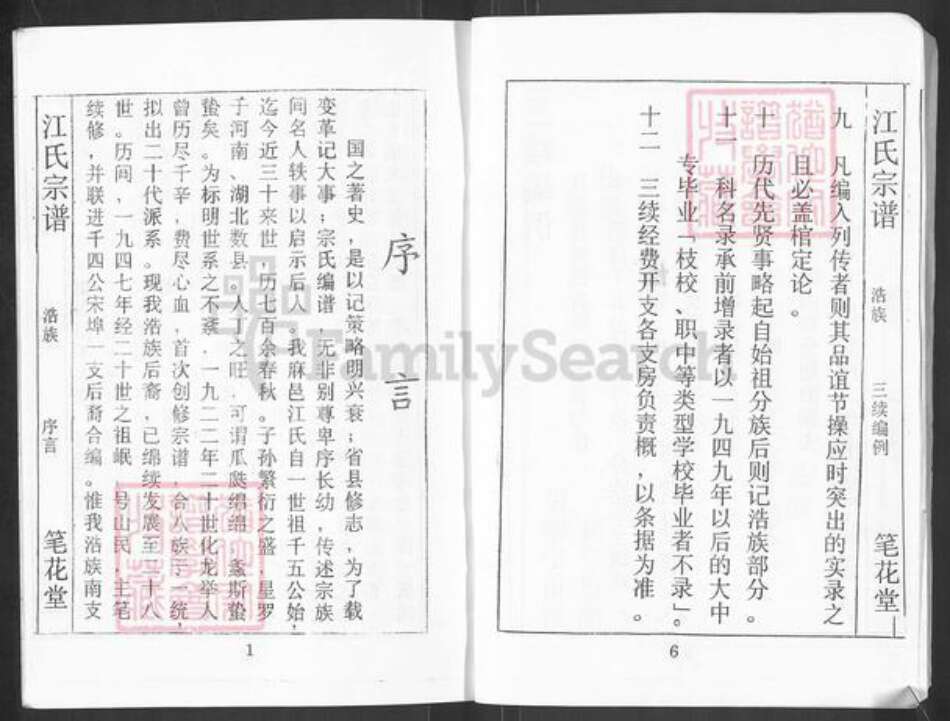 江氏宗谱
浩族
三续编例
笔花堂
九 凡编入列传者则其品谊节操应时突出的实录之
且必盖棺定论。
十 历代先贤事略起自始祖分族后则记浩族部分。
十一 科名录承前增录者以一九四九年以后的大中
专毕业「枝校、职中等类型学校毕业者不录」。
十二 三续经费开支各支房负责概,以条据为准。
6
序言
国之著史,是以记策略明兴衰;省县修志,为了载
变革记大事;宗氏编谱,无非别尊卑序长幼,传述宗族
间名人轶事以启示后人,我麻邑江氏自一世祖千五公始,
迄今近三十来世,历七百余春秋。子孙繁衍之盛,星罗
于河南、湖北数县,人丁之旺,可谓瓜瓞绵绵,螽斯蛰
蛰矣。为标明世系之不紊.一九二二年二十世化龙举人
曾历尽千辛,费尽心血,首次创修宗谱,合八族于一统,
拟出二十代派系。现我浩族后裔,已绵续发展至二十八
世。历间,一九四七年经二十世之祖岷,号山民,主笔
续修,并联进千四公宋埠一支后裔合编。惟我浩族南支
江氏宗谱
浩族
序言
笔花堂
1
FamilySearch